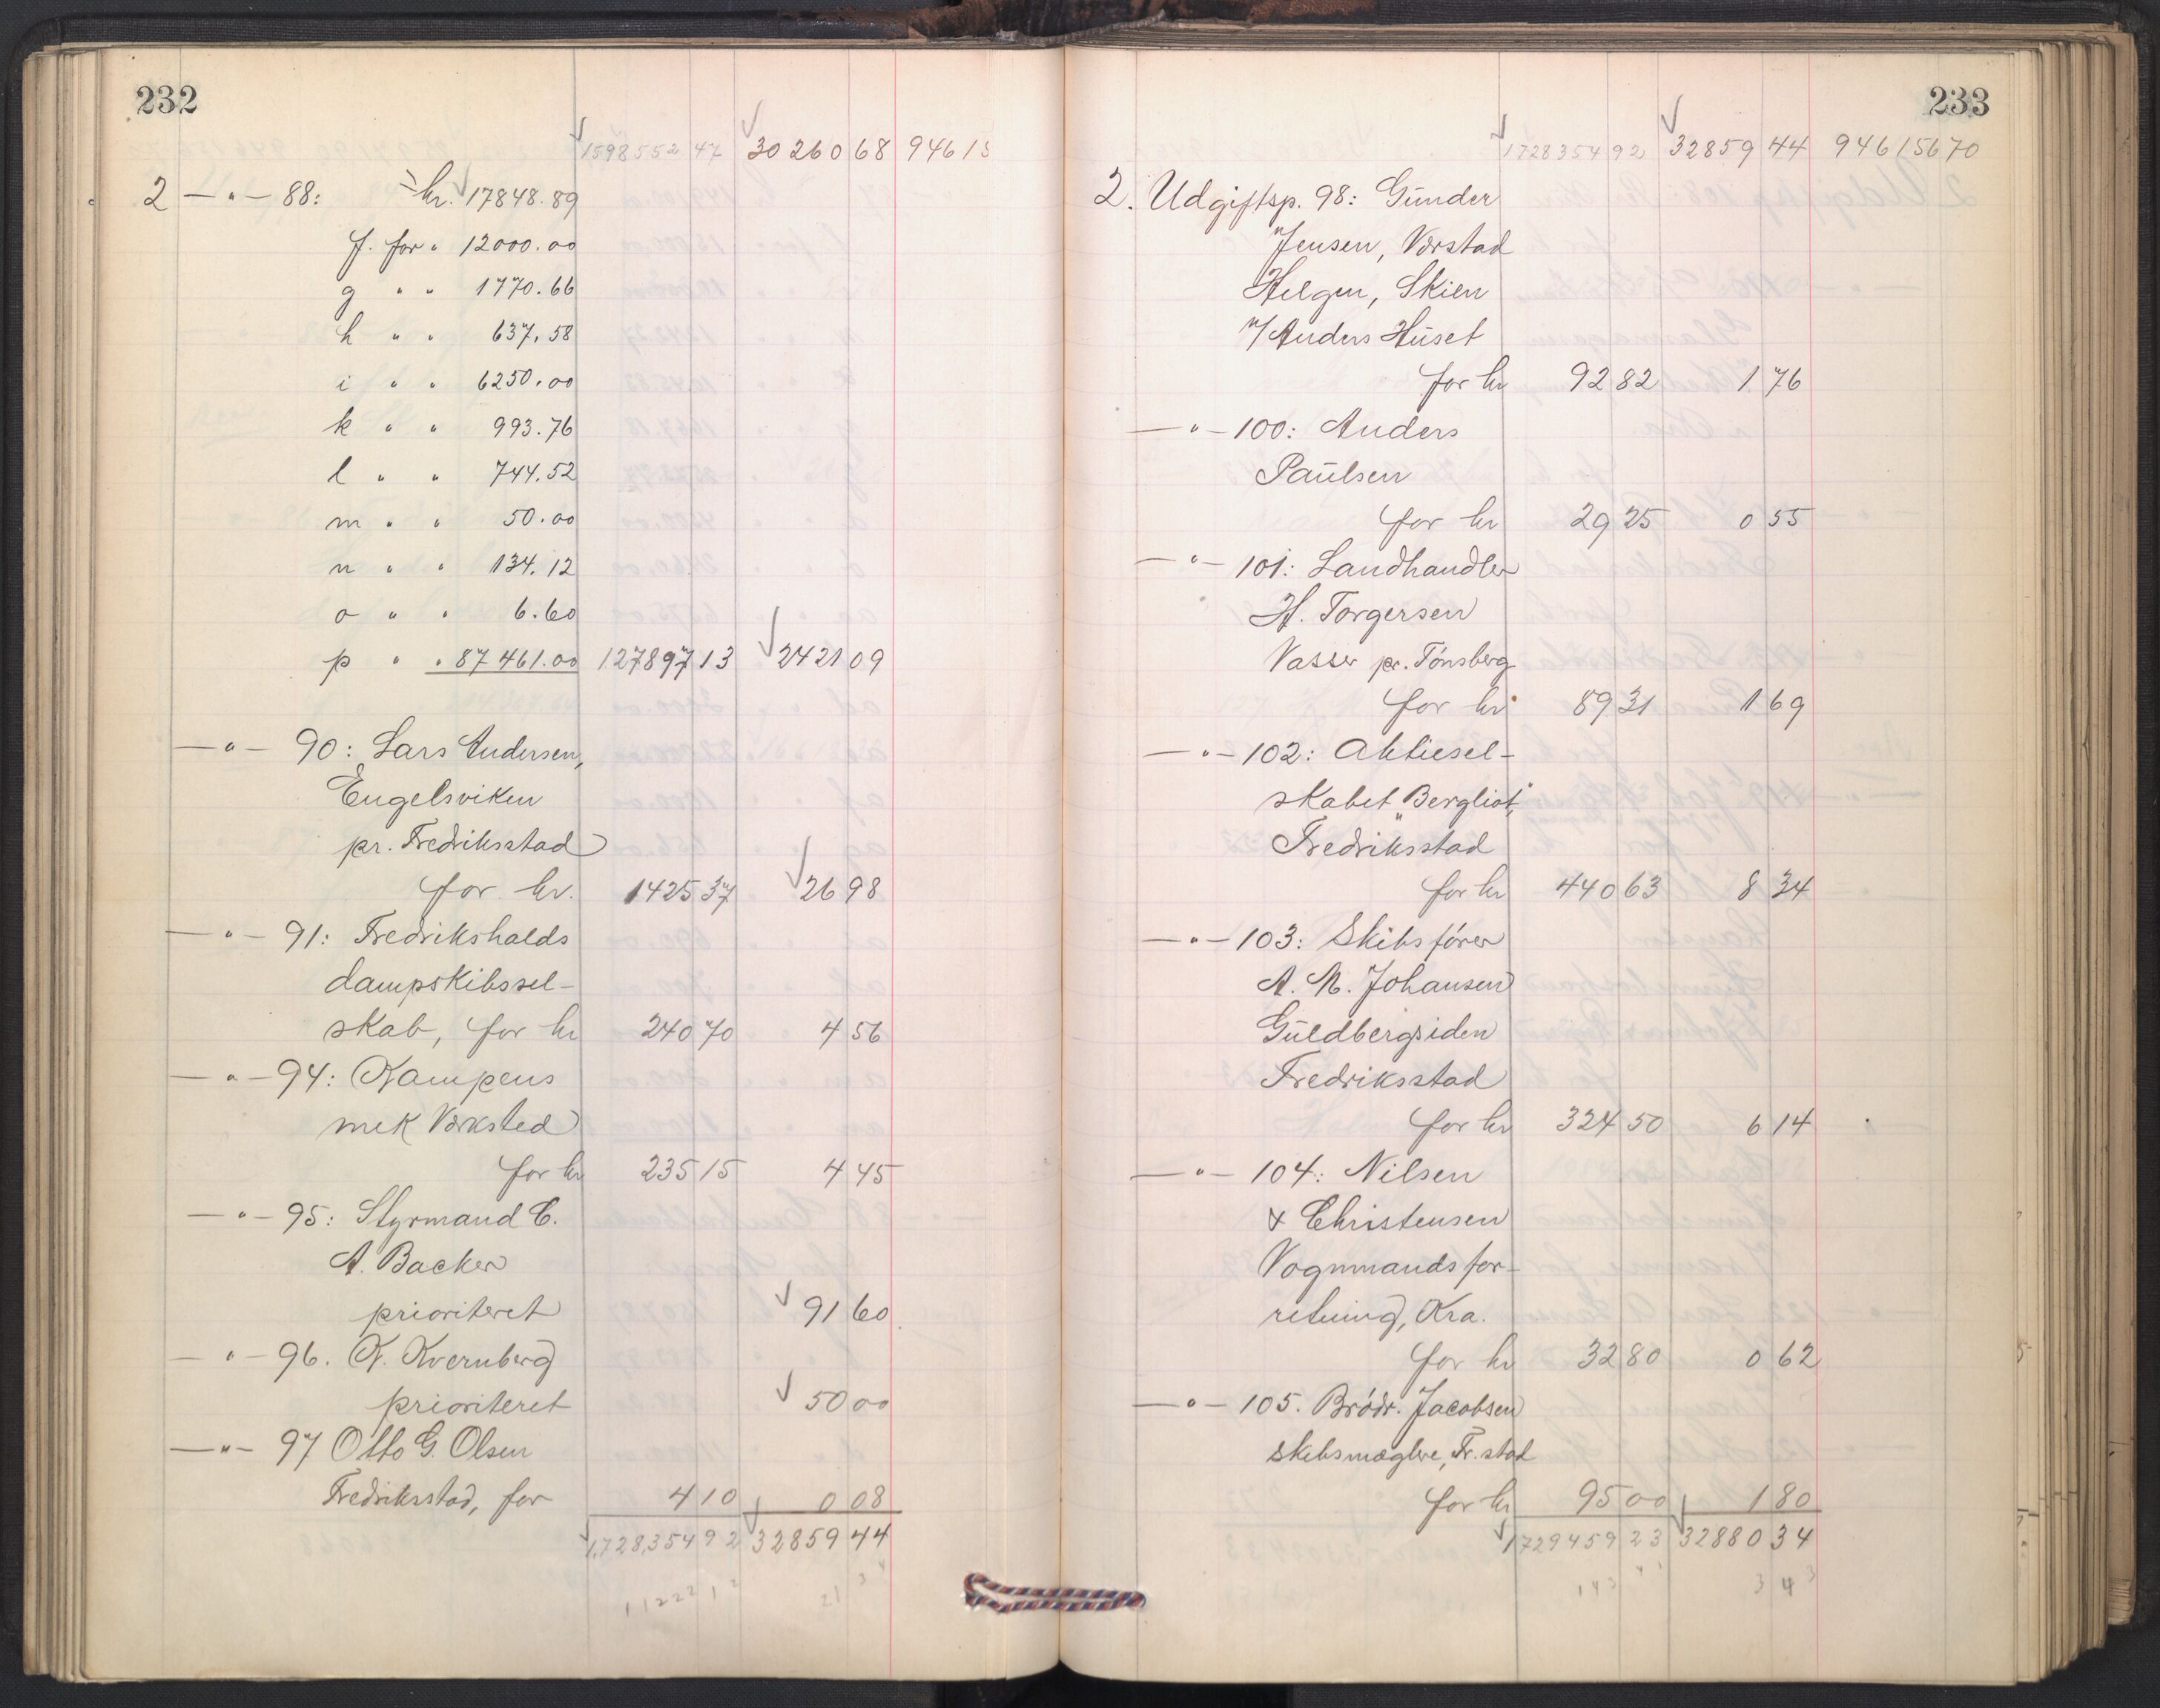 232
1598552 47 30260 68 94615
2 — " — 88: kr. 17848.89
f. for " 12000.00
g " " 1770.66
h " " 637.58
i " " 6250.00
k " " 993.76
l " " 744.52
m " " 50.00
n " " 134.12
o " " 6.60
p " " 87461.00 127897 13 2421 09
— " — 90: Lars Andersen,
Engelsviken
pr. Fredriksstad
for kr. 1425 37 26 98
— " — 91: Fredrikshalds
dampskibssel-
skab, for kr 240 70 4 56
— " — 94: Kampens
mek Værksted
for kr 235 15 4 45
— " — 95: Styrmand C.
A. Backer
prioriteret 91 60
— " — 96. K. Kvernberg
prioriteret 50 00
— " — 97 Otto G. Olsen
Fredriksstad, for 4 10 0 08
1,728,354 92 32859 44
1 1 2 2 2 1 2 21 3 4
233
1728354 92 32859 44 94615670
2. Udgiftsp. 98: Gunder
Jensen, Værstad
Helgen, Skien
v/ Anders Huset
for kr 92 82 1 76
— " — 100: Anders
Paulsen
for kr 29 25 0 55
— " — 101: Landhandler
H. Torgersen
Vasser pr. Tönsberg
for kr 89 31 1 69
— " — 102: Aktiesel-
skabet "Bergliot",
Fredriksstad
for kr 440 63 8 34
— " — 103: Skibsförer
A. M. Johansen
Guldbergsiden
Fredriksstad
for kr 324 50 6 14
— " — 104: Nilsen
& Christensen
Vognmandsfor-
retning, Kra.
for kr 32 80 0 62
— " — 105. Brödr. Jacobsen
skibsmæglere, Fr.stad
for kr 95 00 1 80
1729459 23 32880 34
1 4 3 3 4 3